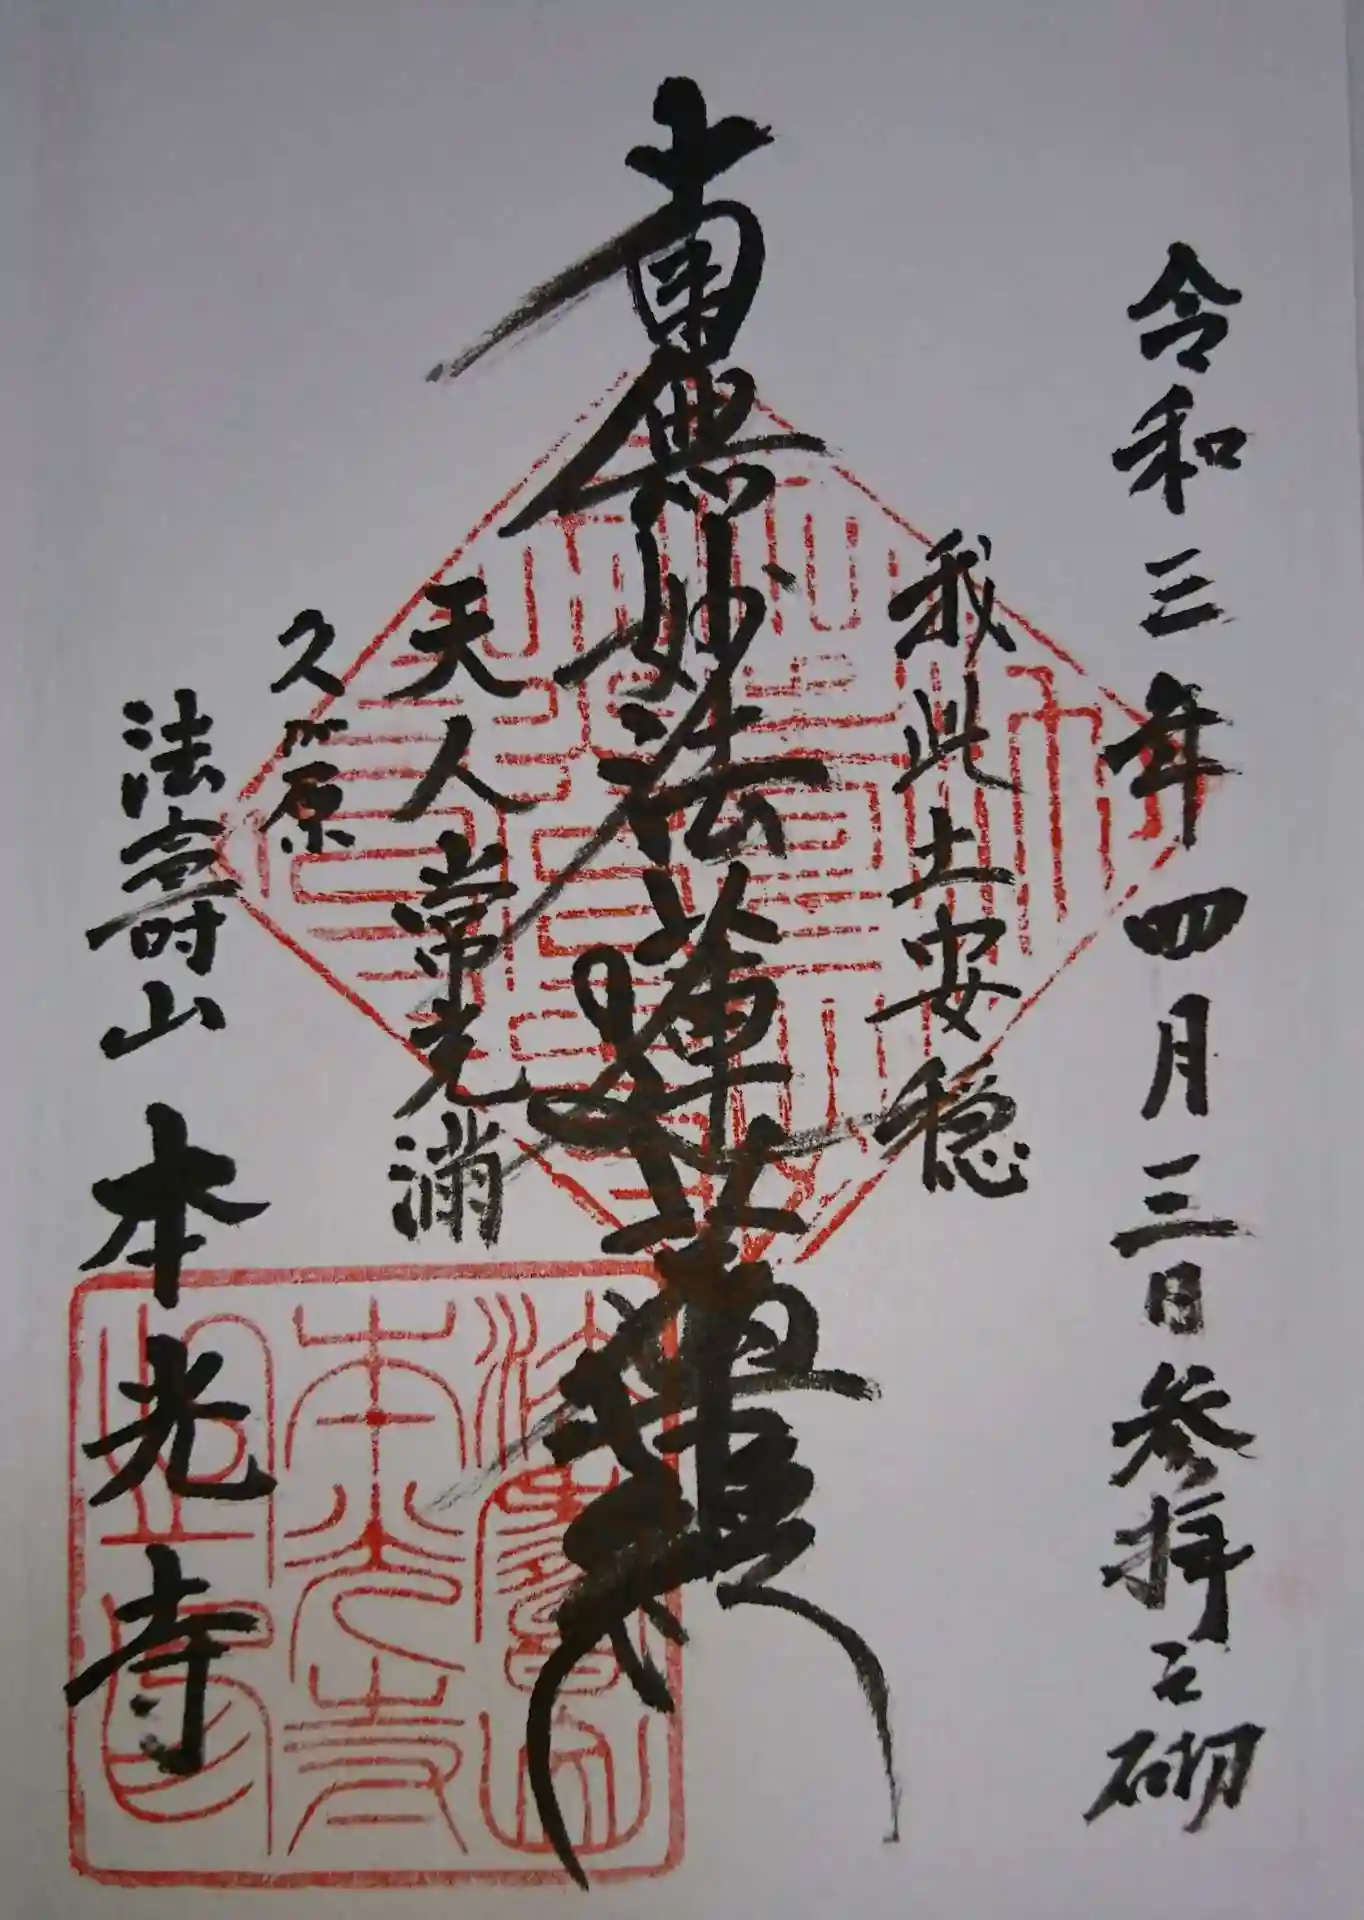 令和三年四月三日参拝之砌
我此土安穏
南無妙法蓮華経
天人常光満
久が原
法寿山
本光寺